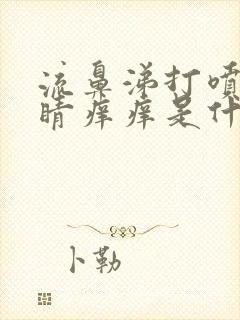 流鼻涕打喷
睛痒痒是什
卜勒